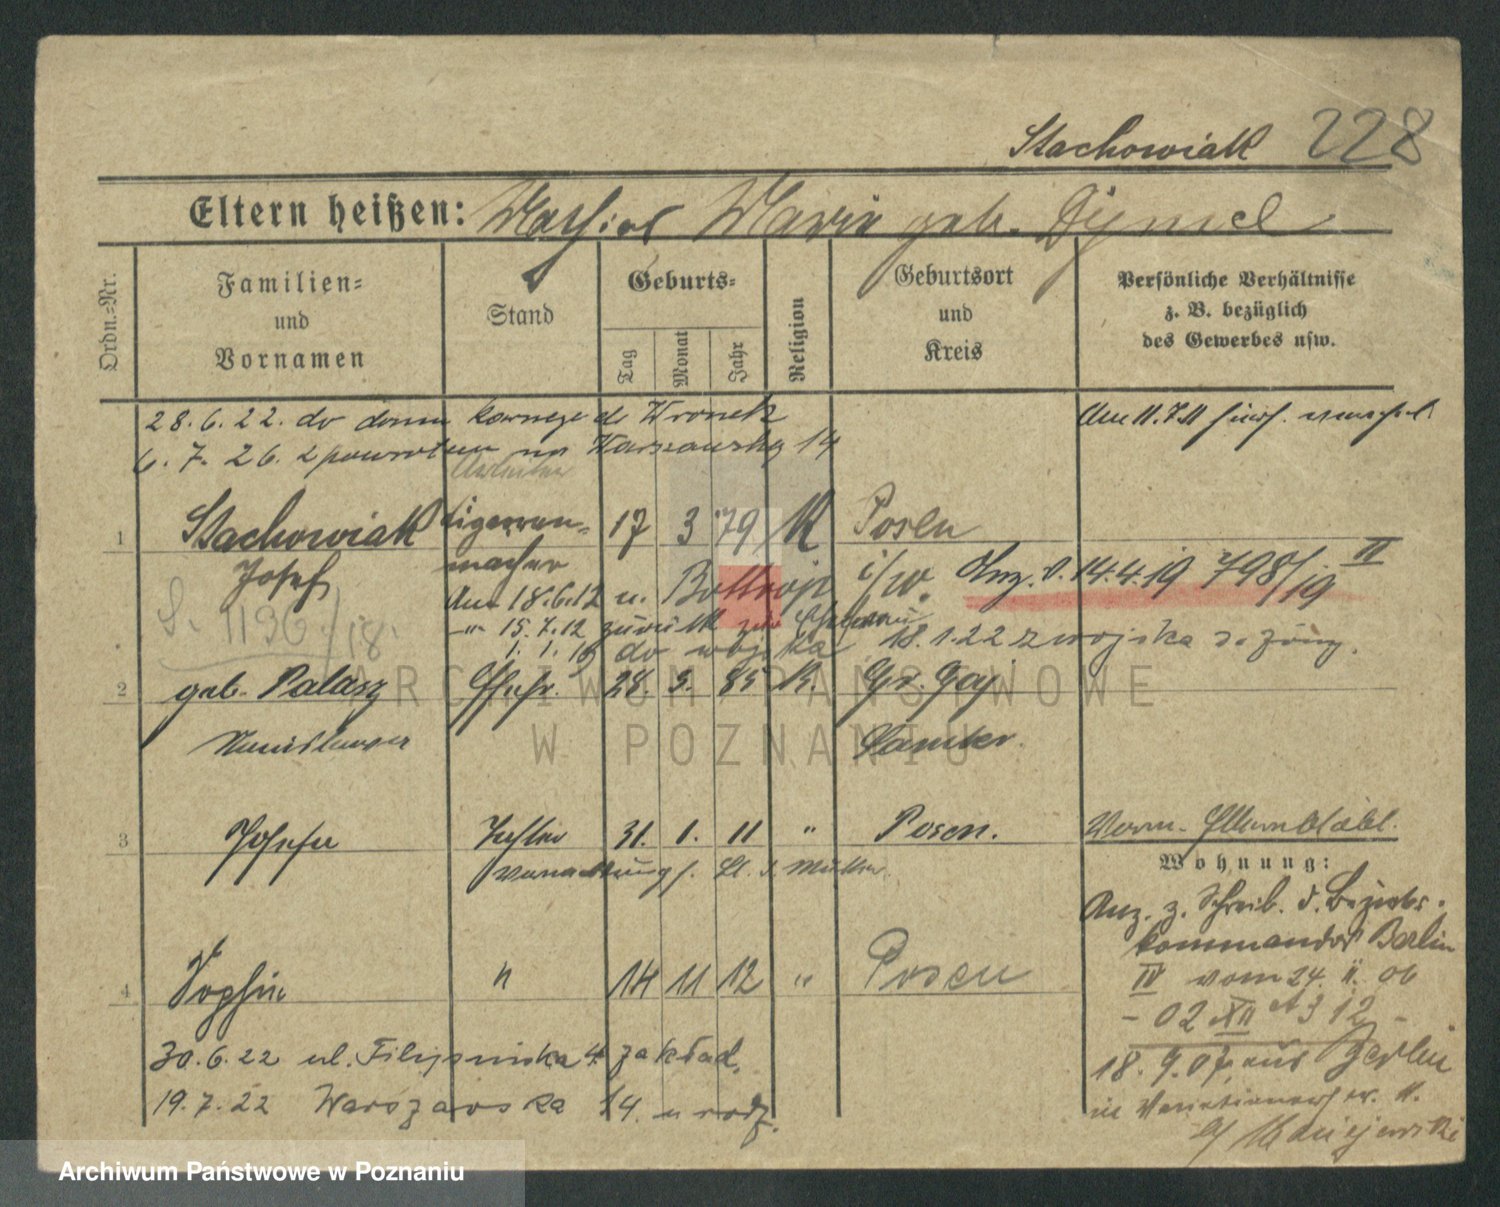 Stachowiak 228
Eltern heißen: Mathias Marie geb. Dymel
Ordn.-Nr.
Familien- und Vornamen
Stand
Geburts-
Tag Monat Jahr
Religion
Geburtsort und Kreis
Persönliche Verhältnisse
z. B. bezüglich
des Gewerbes usw.
28.6.22. do domu karnego do Wronek
Am 11.7.11
6.7.26. z powrotem na Warszawską 14
Arbeiter
1 Stachowiak Zigarren- 17 3 79 K Posen
Josef macher
Anz. v. 14.4.19 798/19 II
Am 18.6.12 n. Bottrop i/W.
S. 1196/18.
-"- 15.7.12 zurück zur Ehefrau
18.1.22 z wojska do żony.
1.1.19 do wojska
2 geb. Palasz Ehefr. 28. 3. 85 K. Gr. Gay
Samter.
3 Josefa Tochter 31. 1. 11 " Posen.
Wohnung:
Anz. z. Schreib. d. Bezirks-
kommandos Berlin
IV vom 24. 11. 06
4 Sophie " 14 11 12 " Posen
- 02 XII A 3 12 -
30.6.22 ul. 4 zakład.
18.9.07. aus Berlin
19.7.22 Warszawska 14. u rodz.
ARCHIWUM PAŃSTWOWE
W POZNANIU
Archiwum Państwowe w Poznaniu